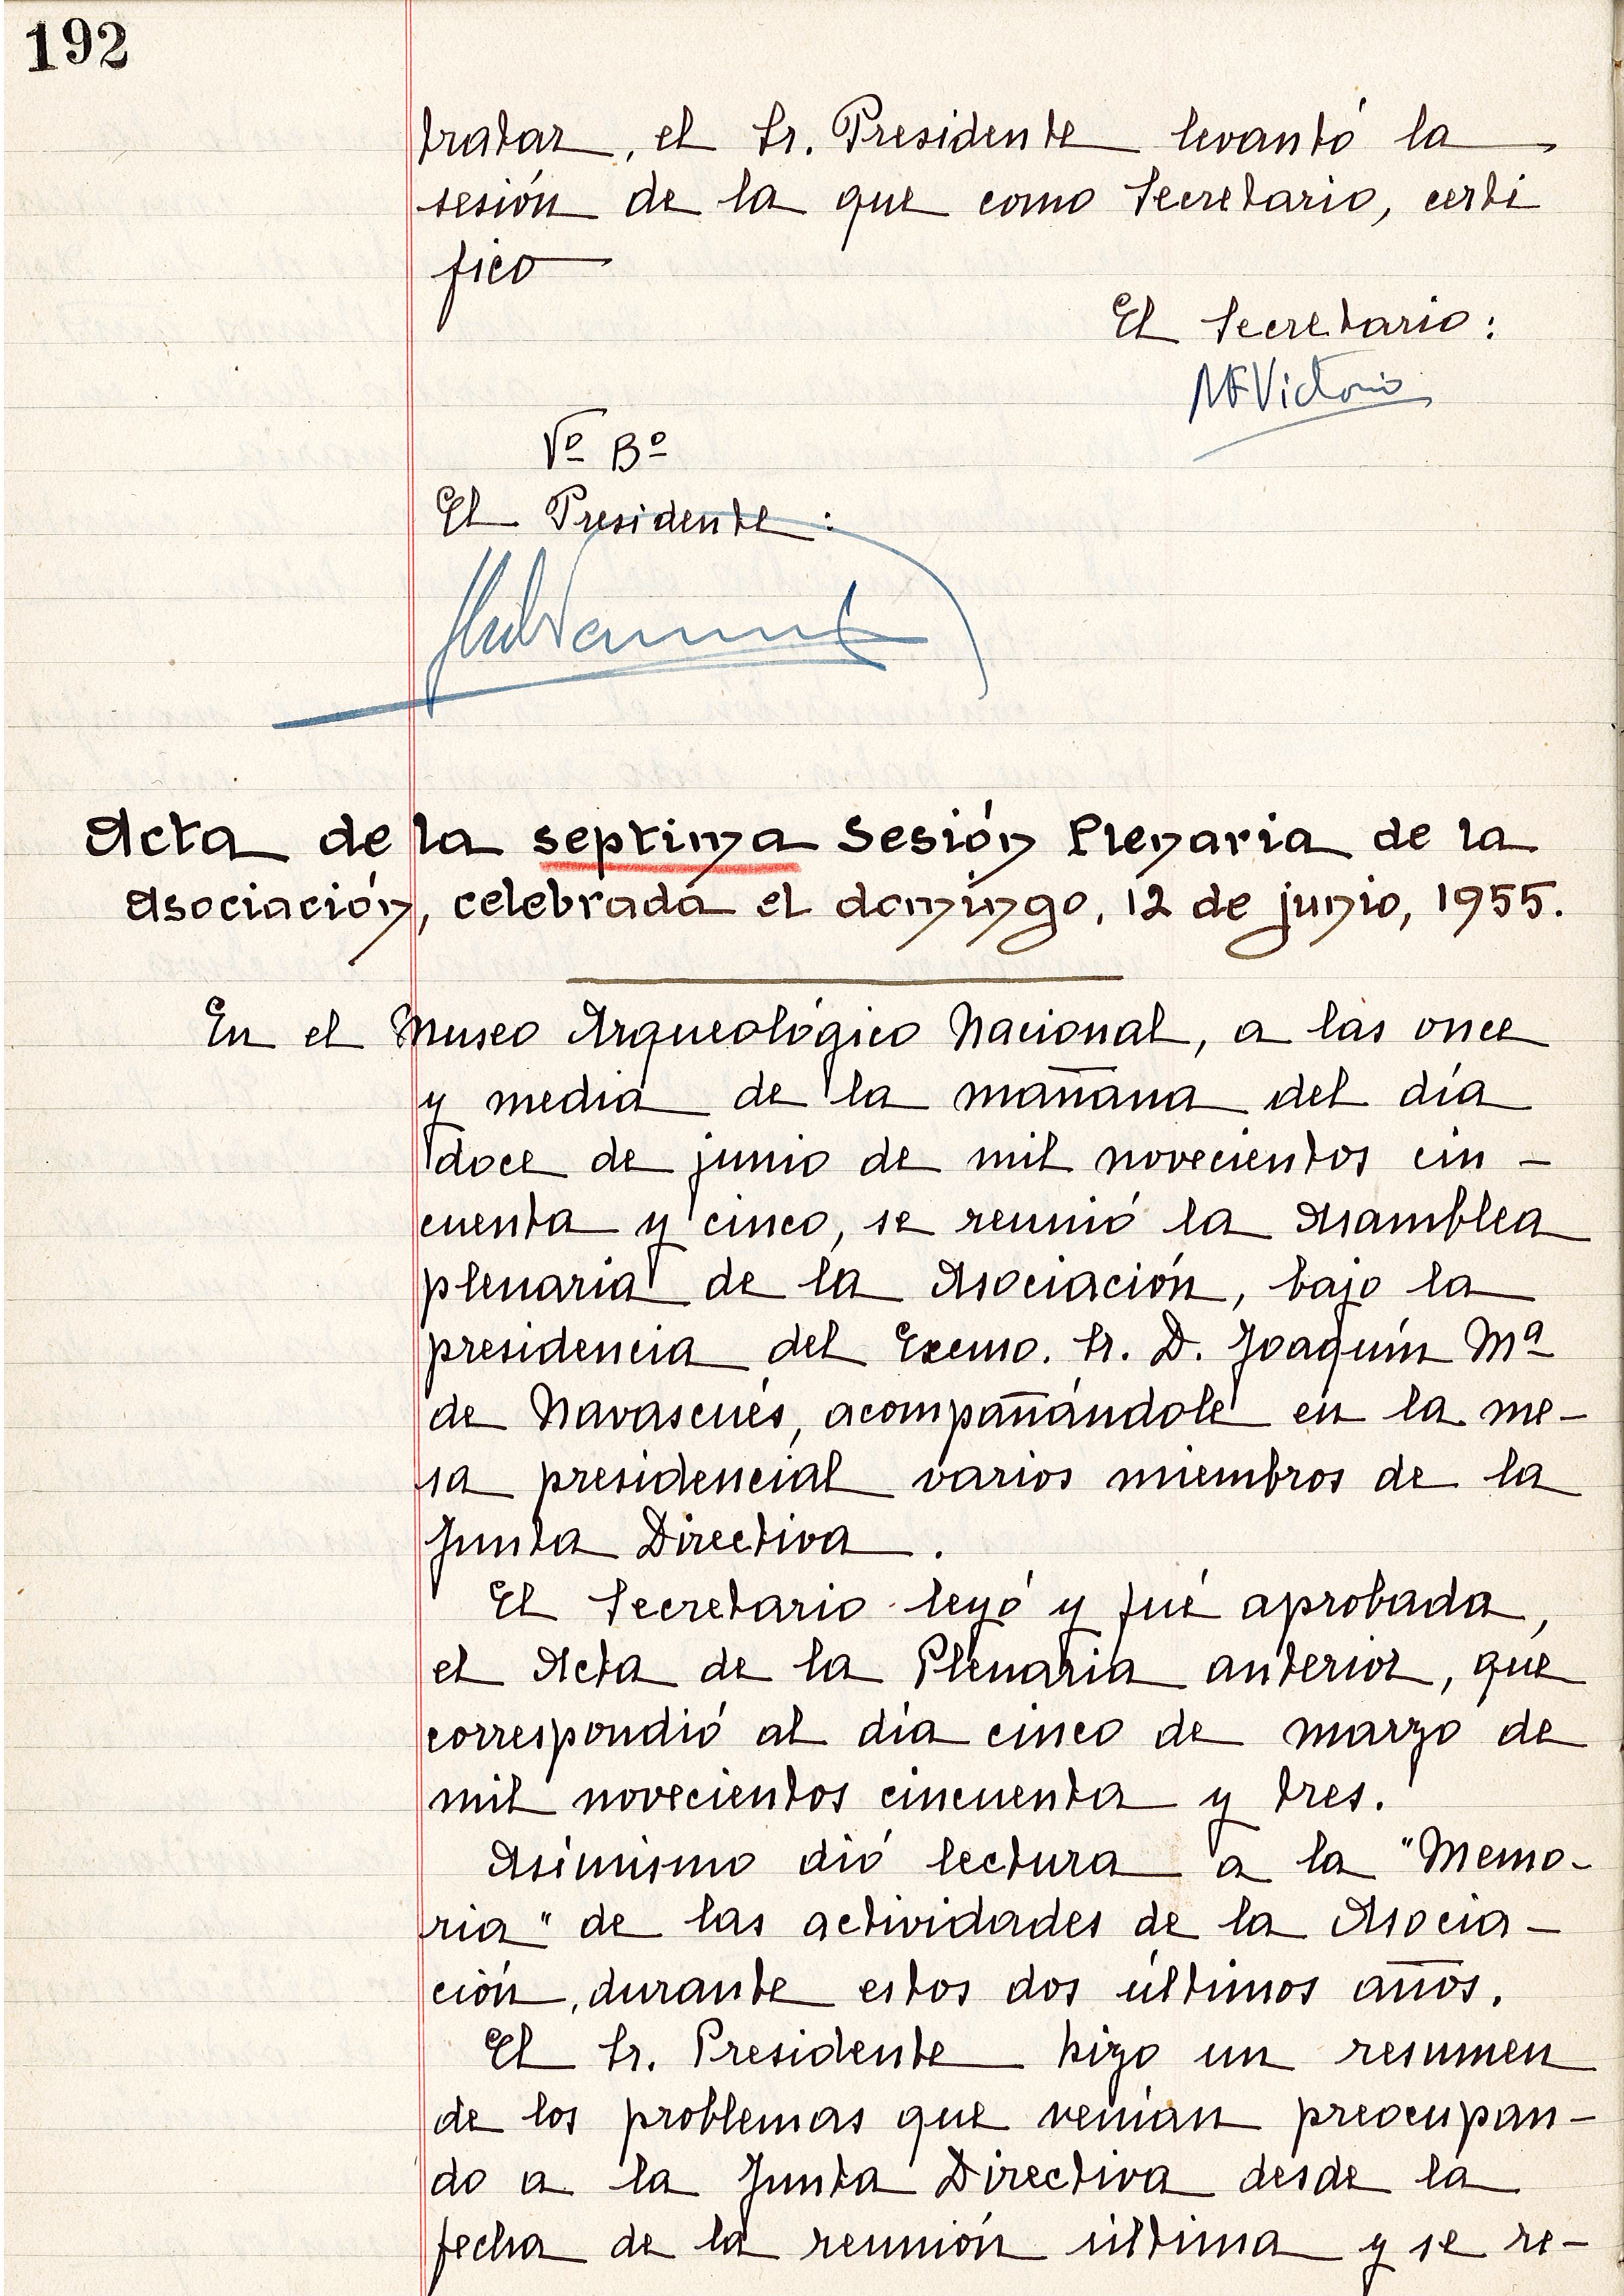 192
tratar, el Sr. Presidente levantó la
sesión de la que como Secretario, certi
fico
El Secretario:
Vº Bº
El Presidente:
Acta de la septima Sesión Plenaria de la
Asociación, celebrada el domingo, 12 de junio, 1955.
En el Museo Arqueológico Nacional, a las once
y media de la mañana del día
doce de junio de mil novecientos cin-
cuenta y cinco, se reunió la Asamblea
plenaria de la Asociación, bajo la
presidencia del Excmo. Sr. D. Joaquín Mª
de Navascués, acompañándole en la me-
sa presidencial varios miembros de la
Junta Directiva.
El Secretario leyó y fué aprobada,
el Acta de la Plenaria anterior, que
correspondió al día cinco de marzo de
mil novecientos cincuenta y tres.
Asímismo dió lectura a la "Memo-
ria" de las actividades de la Asocia-
ción, durante estos dos últimos años.
El Sr. Presidente hizo un resumen
de los problemas que venían preocupan-
do a la Junta Directiva desde la
fecha de la reunión última y se re-